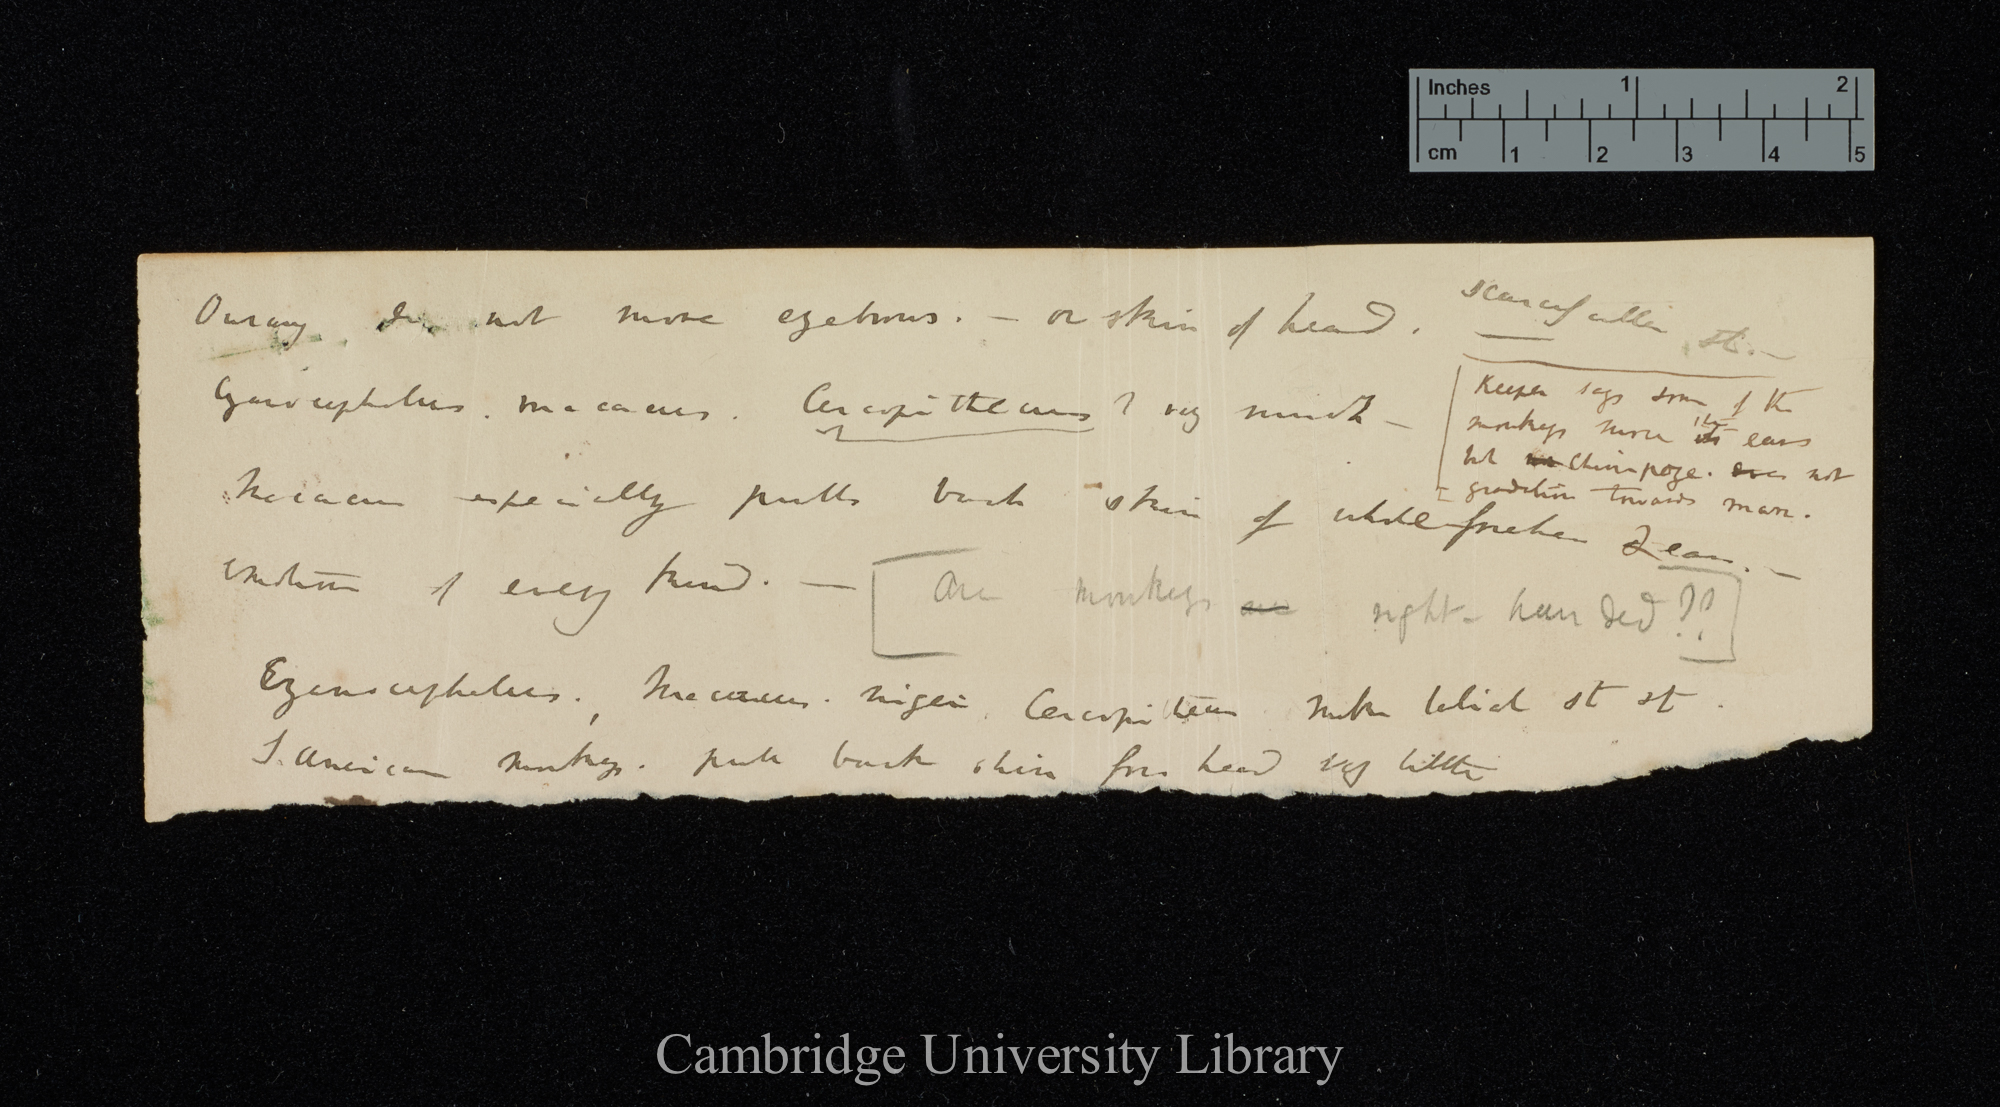 Inches 1 2
cm 1 2 3 4 5
Ourang do not move eyebrows. — or skin of head.
Cynocephalus. macacus. Cercopithecus ? very much —
Keeper says some of the
monkeys move their ears
but Chimpaze. does not
= gradation towards man.
Macacus especially pulls back skin of whole forehead & ears. —
emotion of every kind. — [Are monkeys are right-handed??]
Cynocephalus. Macacus. niger, Cercopithecus make labial st st.
S. American monkeys. pull back skin fore head very little
Cambridge University Library